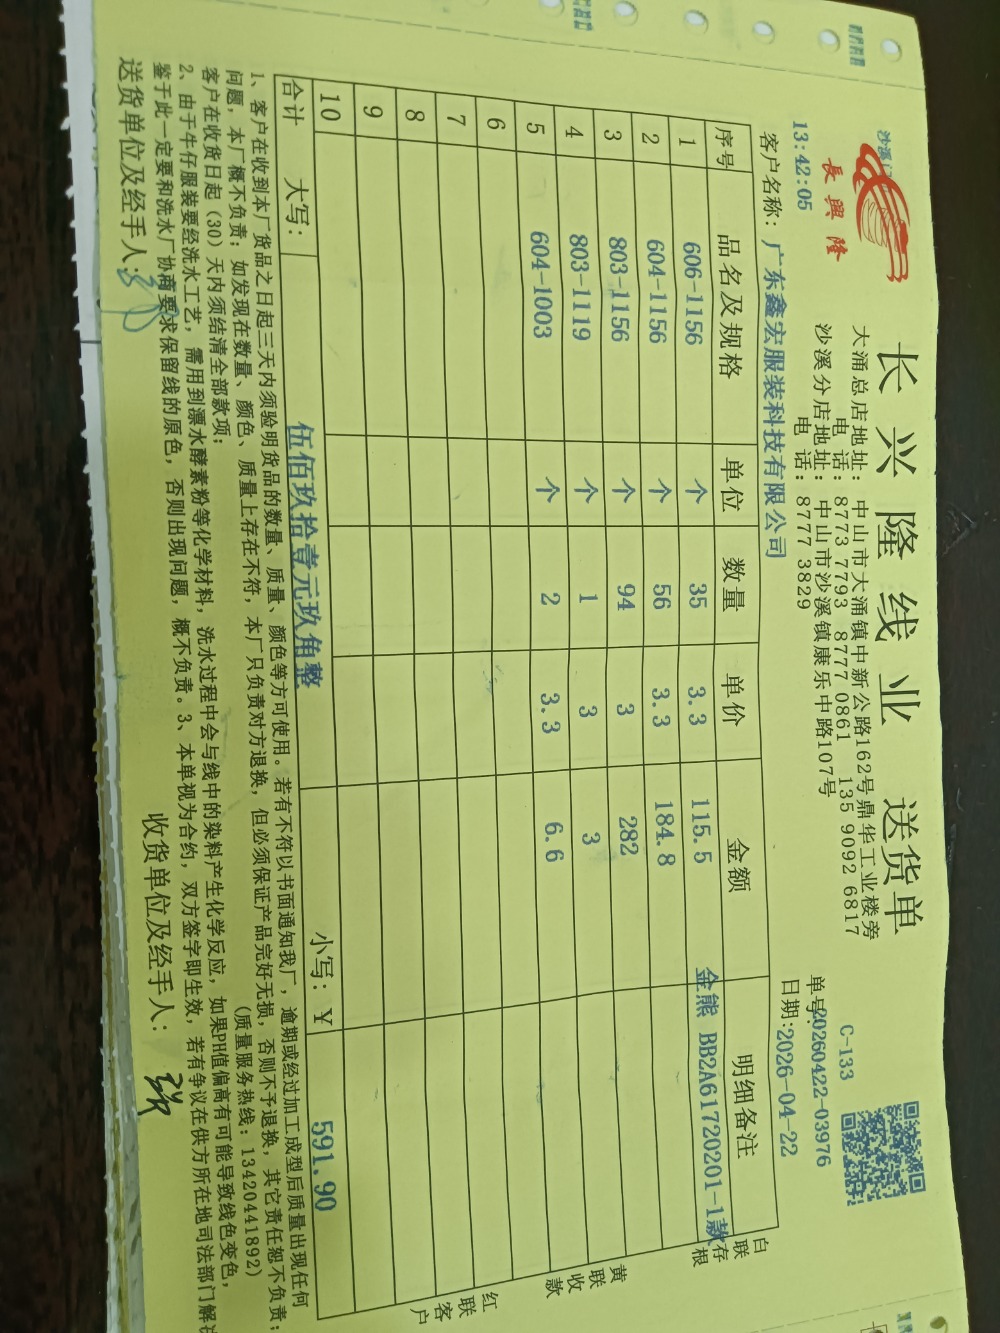 沙溪门
長興隆
13:42:05
长兴隆线业 送货单
大涌总店地址: 中山市大涌镇中新公路162号鼎华工业楼旁
电 话: 8773 7793 8777 0861 135 9092 6817
沙溪分店地址: 中山市沙溪镇康乐中路107号
电 话: 8777 3829
C-133
单号:20260422-03976
日期:2026-04-22
客户名称: 广东鑫宏服装科技有限公司
序号 品名及规格 单位 数量 单价 金额 明细备注
1 606-1156 个 35 3.3 115.5 金熊 BB2A61720201-1款
2 604-1156 个 56 3.3 184.8
3 803-1156 个 94 3 282
4 803-1119 个 1 3 3
5 604-1003 个 2 3.3 6.6
6
7
8
9
10
合计 大写: 伍佰玖拾壹元玖角整 小写: ¥ 591.90
白联存根
黄联收款
红联客户
1、客户在收到本厂货品之日起三天内须验明货品的数量、质量、颜色等方可使用。若有不符以书面通知我厂，逾期或经过加工成型后质量出现任何
问题，本厂概不负责；如发现在数量、颜色、质量上存在不符，本厂只负责对方退换，但必须保证产品完好无损，否则不予退换，其它责任恕不负责；
客户在收货日起（30）天内须结清全部款项； (质量服务热线: 13420441892)
2、由于牛仔服装要经洗水工艺，需用到漂水酵素粉等化学材料，洗水过程中会与线中的染料产生化学反应，如果PH值偏高有可能导致线色变色，
鉴于此一定要和洗水厂协商要求保留线的原色，否则出现问题，概不负责。3、本单视为合约，双方签字即生效，若有争议在供方所在地司法部门解
送货单位及经手人: 收货单位及经手人: